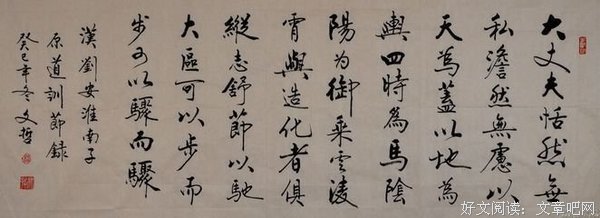 大丈夫恬然無
私澹然無慮以
天為蓋以地為
輿四時為馬陰
陽為御乘雲陵
霄與造化者俱
縱志舒節以馳
大區可以步而
步可以驟而驟
漢劉安淮南子
原道訓節錄
癸巳年冬文哲
好文阅读：文章吧网